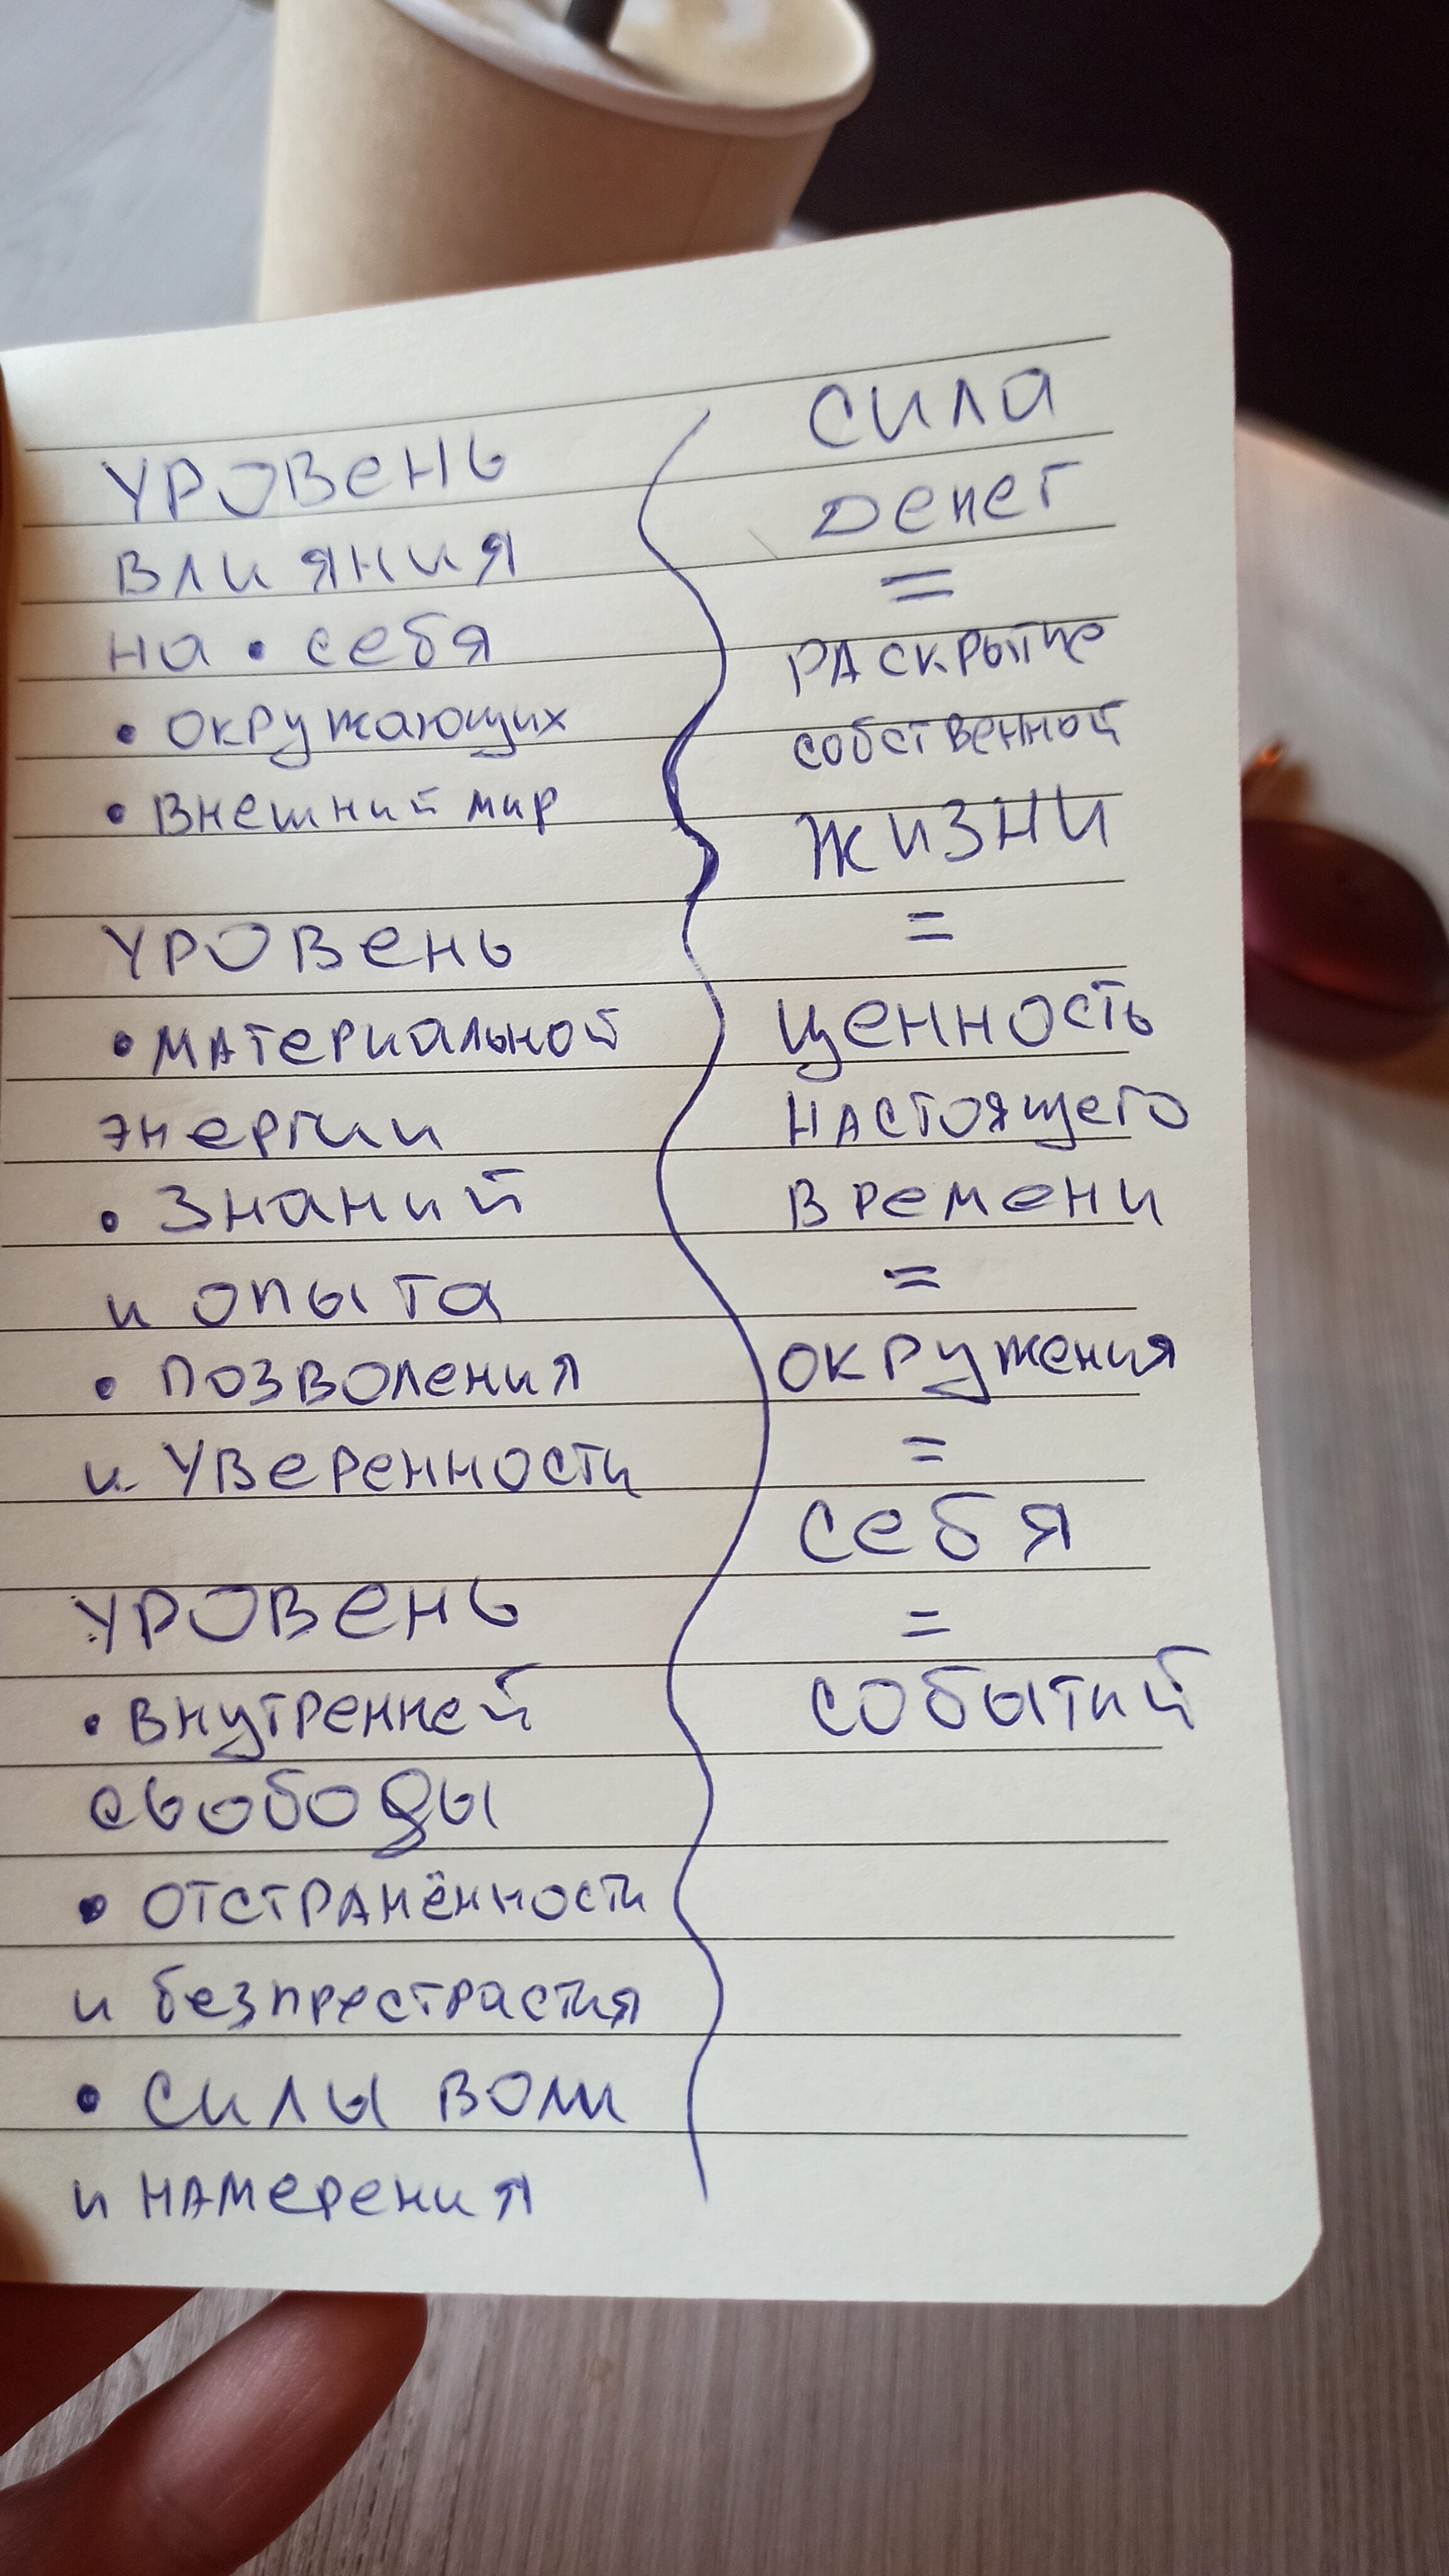 УРОВЕНЬ
ВЛИЯНИЯ
на • себя
• окружающих
• Внешний мир
УРОВЕНЬ
• материальной
энергии
• Знаний
и опыта
• позволения
и уверенности
УРОВЕНЬ
• внутренней
свободы
• отстранённости
и безпрестрастия
• силы воли
и намерения
сила
денег
=
раскрытие
собственной
жизни
=
ценность
настоящего
времени
=
окружения
=
себя
=
событий